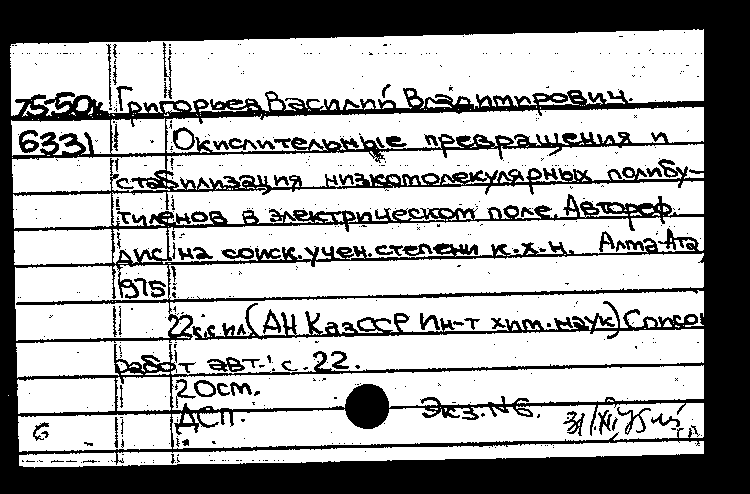 75-50к Григорьев, Василий Владимирович.
6331 Окислительные превращения и
стабилизация низкомолекулярных полибу-
тиленов в электрическом поле. Автореф.
дис. на соиск. учен. степени к.х.н. Алма-Ата,
1975
22 с. с ил. (АН КазССР Ин-т хим. наук) Список
работ авт.: с. 22.
20 см.
ДСП. Экз. № 6.
6 31/XII 75